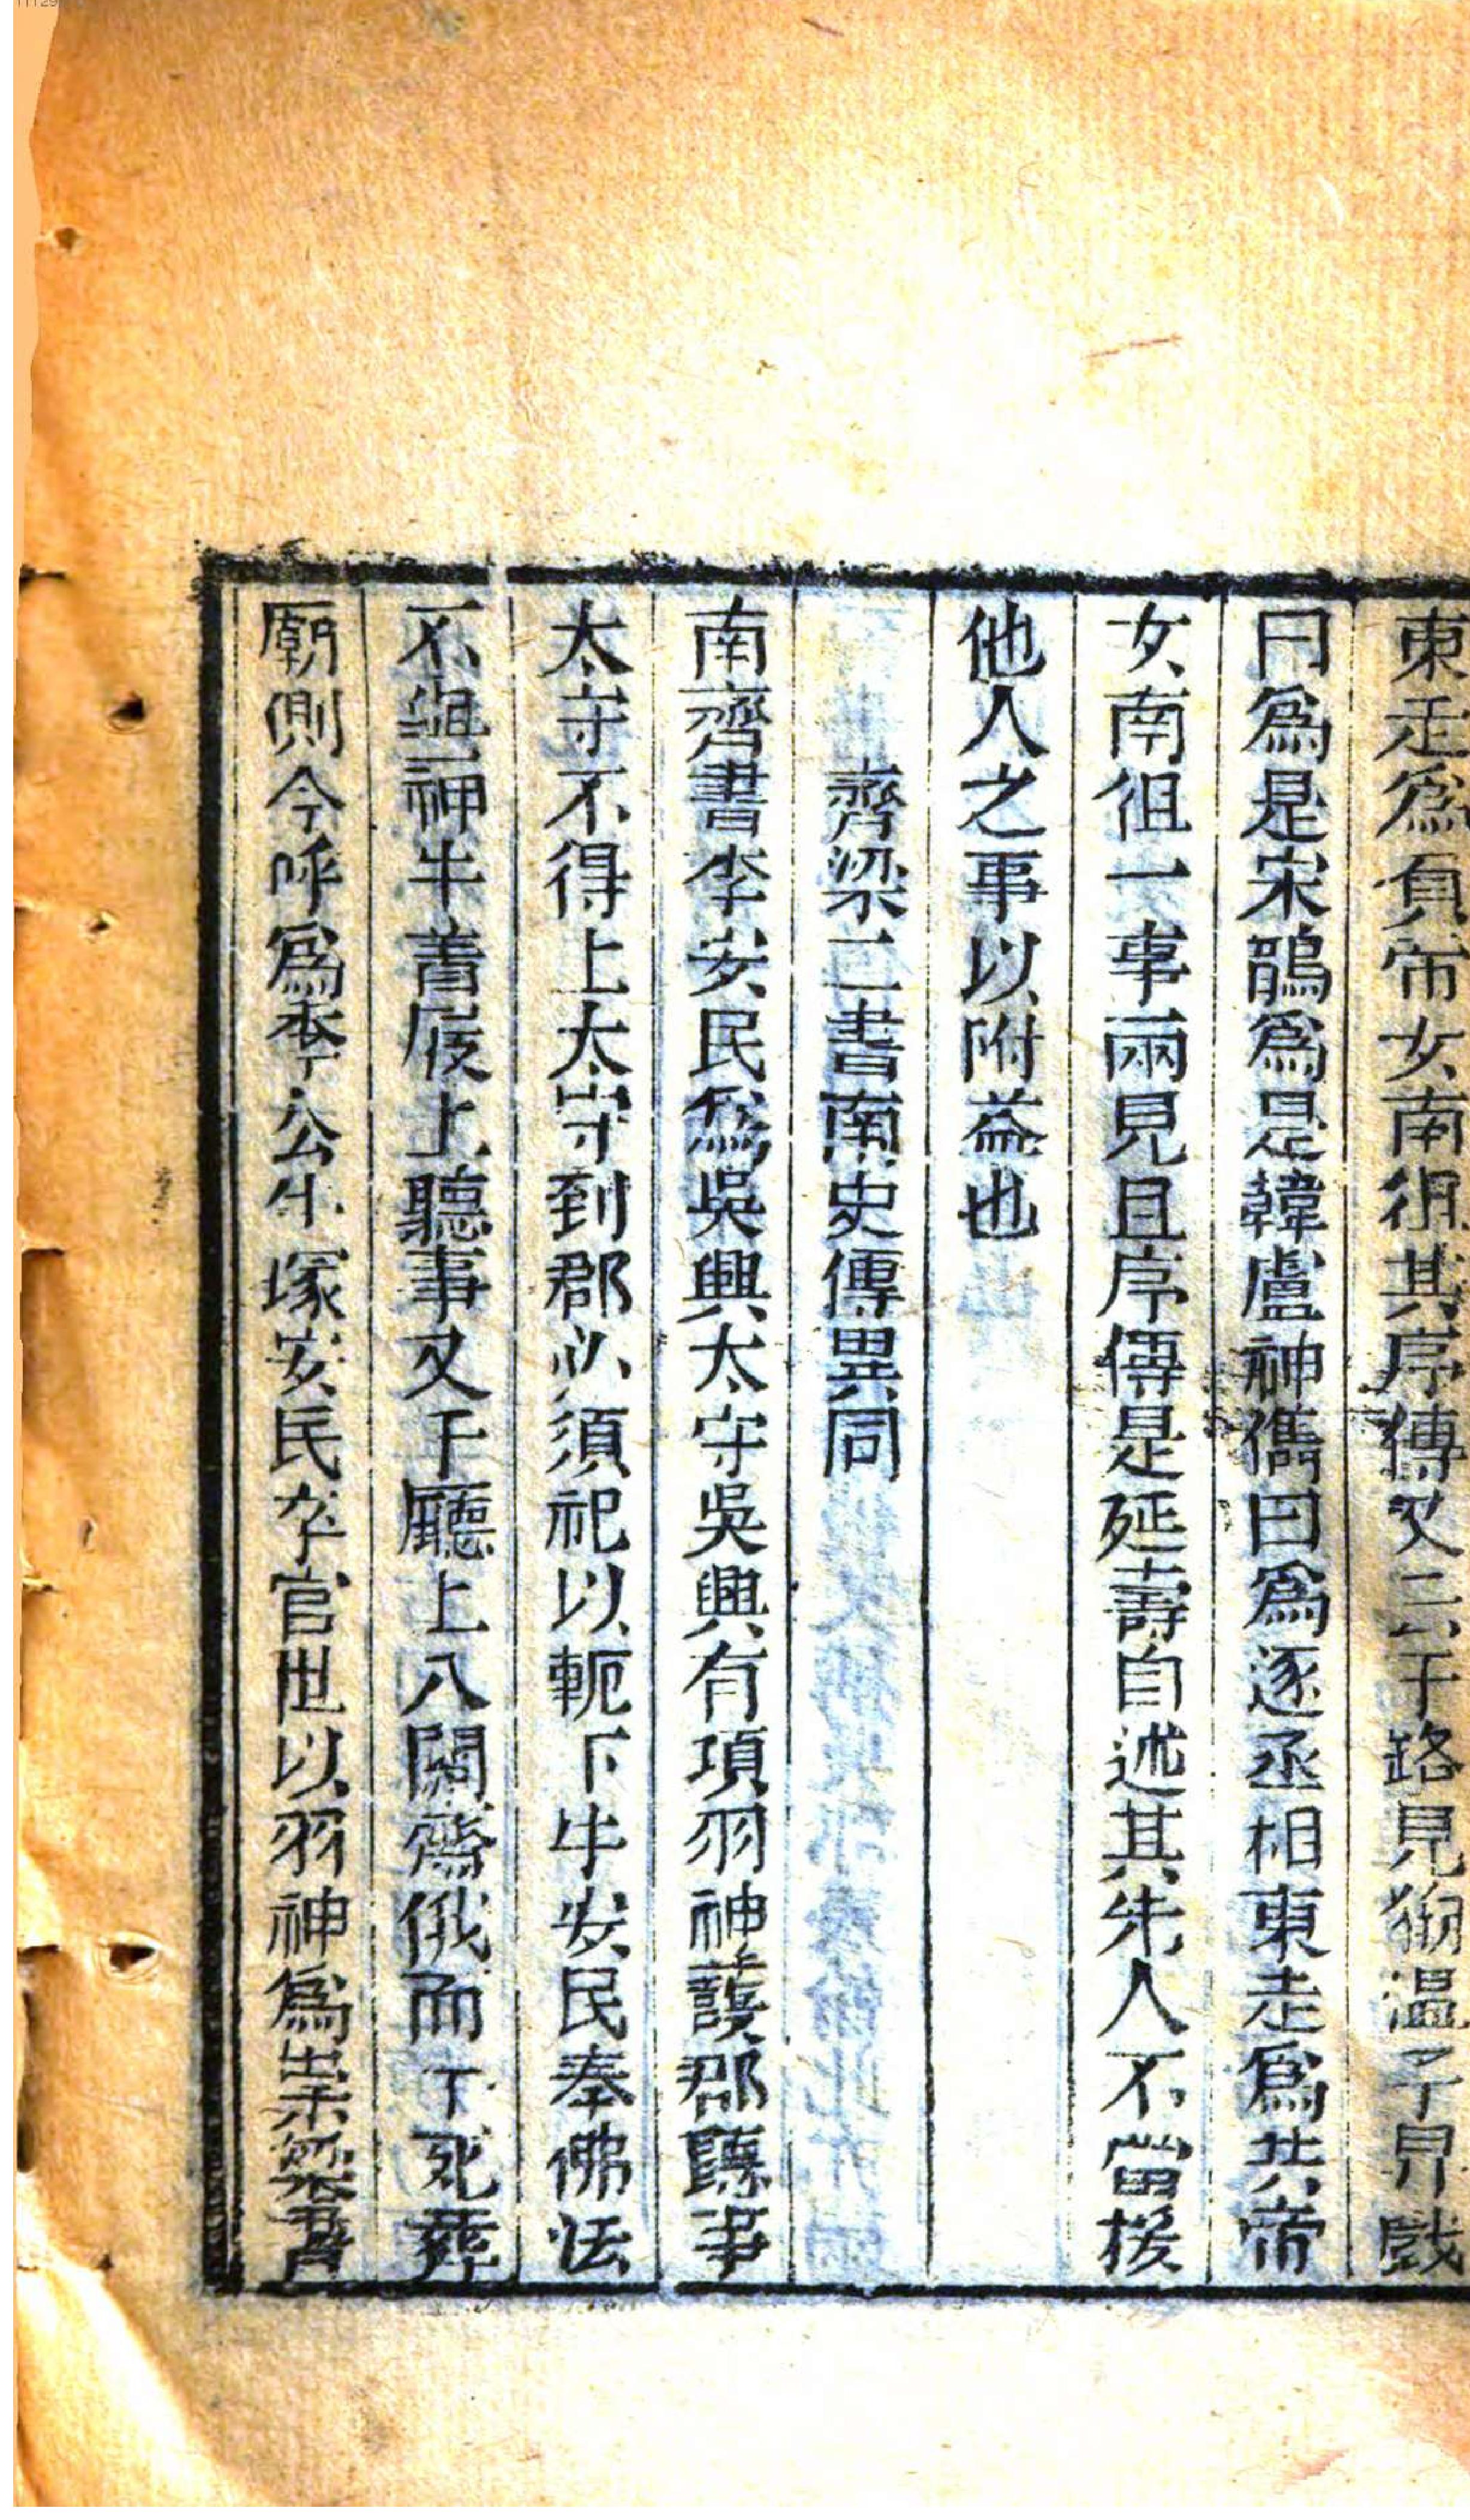 東走爲負帝女南徂其序傳又云于路見狗温子昇戲
曰爲是宋鵲爲是韓盧神儁曰爲逐丞相東走爲共帝
女南徂一事兩見且序傳是延壽自述其先人不當援
他人之事以附益也
齊梁二書南史傳異同
南齊書李安民爲吳興太守吳興有項羽神護郡聽事
太守不得上太守到郡必須祀以軛下牛安民奉佛法
不與神牛著屐上聽事又于廳上八關齋俄而牛死葬
廟側今呼爲李公牛塚安民卒官世以羽神爲祟梁書